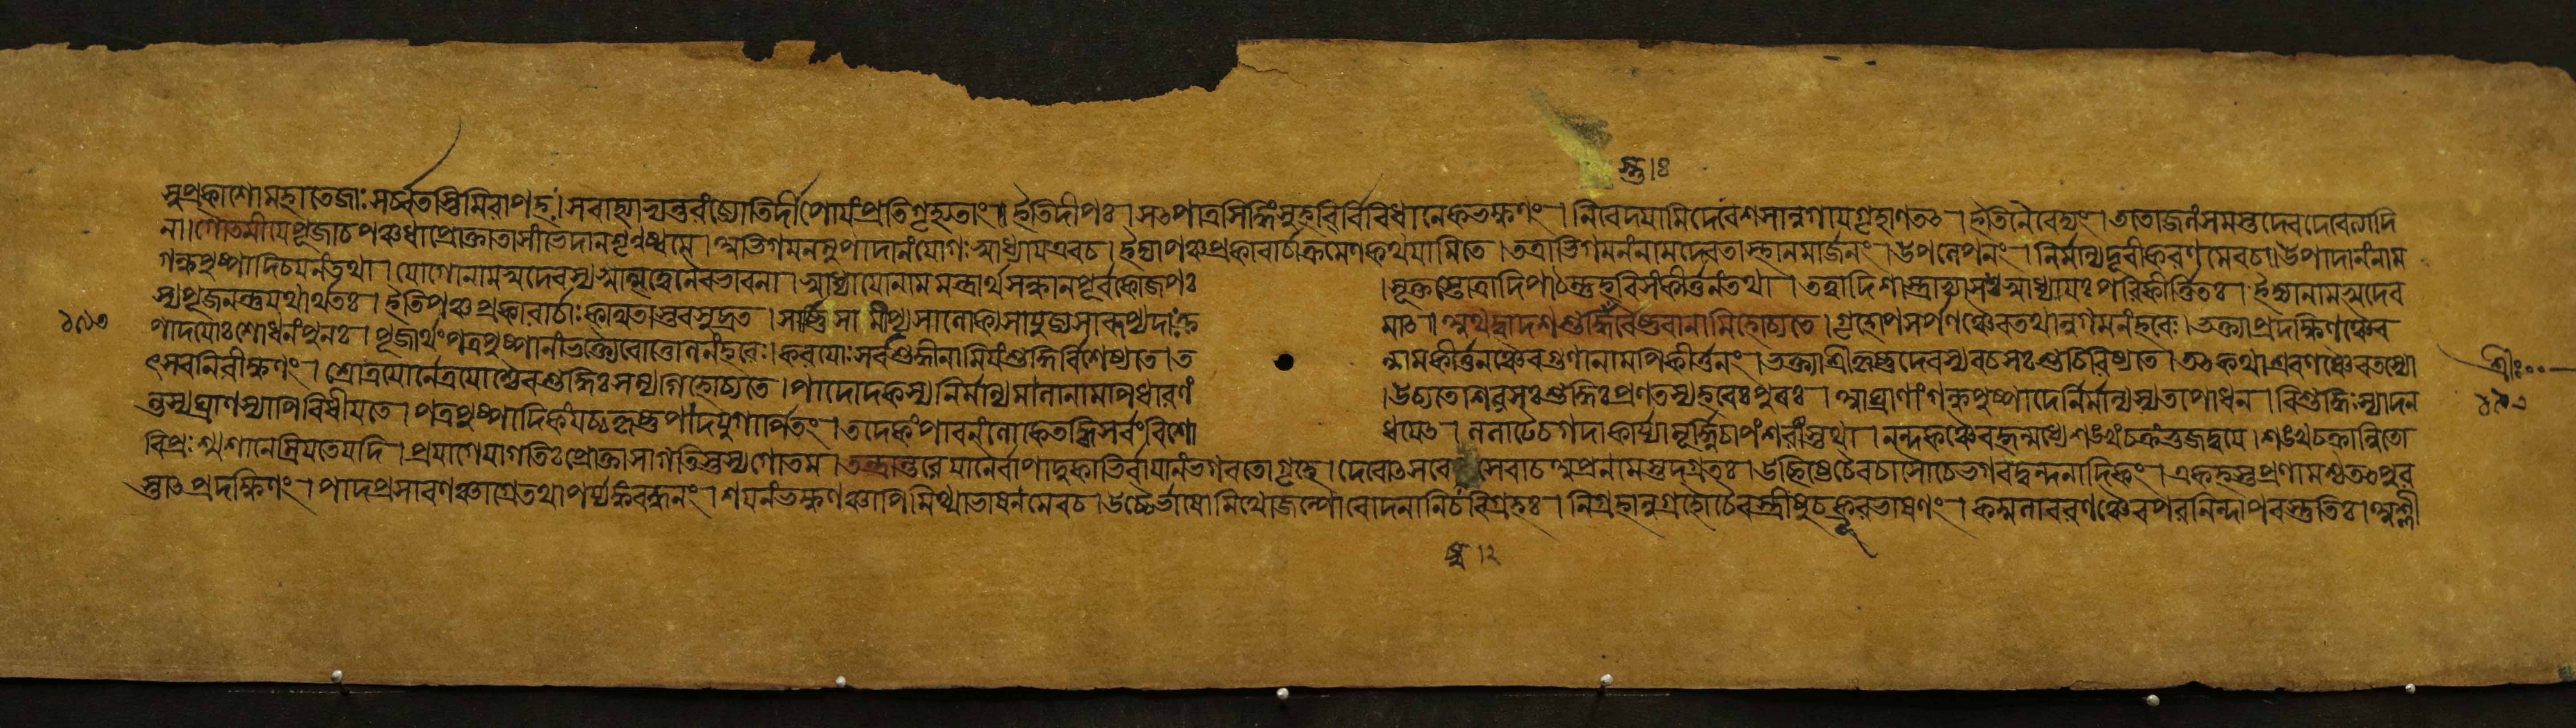 সুপ্রকাশোমহাতেজাঃসর্ব্বতস্তিমিরাপহ। সবাহ্যাভ্যন্তরংজ্যোতির্দীপোয়ংপ্রতিগৃহ্যতাং॥ ইতিদীপঃ। সৎপাত্রসিদ্ধিংসুহবির্বিবিধানেকভক্ষণং। নিবেদয়ামিদেবেশসানুগায়গৃহাণতৎ। ইতিনৈবেদ্যং। ততোজলংসমস্তদেবদেবেত্যাদি
না। গৌতমীয়েপূজাচপঞ্চধাপ্রোক্তাতাসাংভেদানশৃণুষ্বমে। অভিগমনমুপাদানংযোগঃস্বাধ্যায়এবচ। ইজ্যাপঞ্চপ্রকারার্চাক্রমেণকথয়ামিতে। তত্রাভিগমনংনামদেবতাস্থানমার্জনং। উপলেপনং। নির্মাল্যদূরীকরণমেবচ॥ উপাদানংনাম
গন্ধপুষ্পাদিচয়নংতথা। যোগোনামস্বদেবস্যআত্মত্বেনৈবভাবনা। স্বাধ্যায়োনামমন্ত্রার্থসন্ধানপূর্বকোজপঃ। সূক্তস্তোত্রাদিপাঠস্তুহরিসংকীর্ত্তনংতথা। তত্ত্বাদিশাস্ত্রাভ্যাসঃস্বাধ্যায়ঃপরিকীর্ত্তিতঃ। ইজ্যানামস্বদেব
স্যপূজনন্তুযথার্থতঃ। ইতিপঞ্চপ্রকারার্চাঃকথিতাস্তবসুব্রত। সার্ষ্টিসামীপ্যসালোক্যসাযুজ্যসারূপ্যদাঃক্র
মাৎ॥ অথদ্বাদশশুদ্ধিংবৈষ্ণবানামিহোচ্যতে। গৃহোপসর্পণঞ্চৈবতথানুগমনংহরেঃ। ভক্ত্যাপ্রদক্ষিণঞ্চৈব
পাদয়োঃশোধনংপুনঃ। পূজার্থংপত্রপুষ্পানাংভক্ত্যৈবোত্তোলনংহরেঃ। করয়োঃসর্বশুদ্ধীনামিয়ংশুদ্ধির্বিশেষ্যতে। ত
ন্নামকীর্ত্তনঞ্চৈবগুণানামপিকীর্ত্তনং। ভক্ত্যাশ্রীকৃষ্ণদেবস্যবচসঃশুদ্ধিরিষ্যতে। তৎকথাশ্রবণঞ্চৈবতস্যো
ৎসবনিরীক্ষণং। শ্রোত্রয়োর্নেত্রয়োশ্চৈবশুদ্ধিঃসম্যগিহোচ্যতে। পাদোদকস্যনির্মাল্যমালানামপিধারণং
।উচ্যতেশিরসঃশুদ্ধিঃপ্রণতস্যহরেঃপুরঃ। আঘ্রাণংগন্ধপুষ্পাদের্নির্মাল্যস্যতপোধন। বিশুদ্ধিঃস্যাদন
ন্তস্যঘ্রাণস্যাপিবিধীয়তে। পত্রপুষ্পাদিকংযচ্চকৃষ্ণপাদযুগার্পিতং। তদেকংপাবনংলোকেতদ্ধিসর্বংবিশো
ধয়েৎ। ললাটেচগদাকার্য্যামূর্দ্ধ্নিচাপংশরাংস্তথা। নন্দকঞ্চৈবহৃন্মধ্যেশঙ্খংচক্রংভুজদ্বয়ে। শঙ্খচক্রান্বিতো
বিপ্রঃশ্মশানেম্রিয়তেযদি। প্রয়াগেযাগতিঃপ্রোক্তাসাগতিস্তস্যগৌতম। তন্ত্রান্তরেযানৈর্বাপাদুকাভির্বাযানংভগবতোগৃহে। দেবোৎসবে সেবাচঅপ্রনামস্তদগ্রতঃ। উচ্ছিষ্টেচৈবচাসৌচেভগবদ্বন্দনাদিকং। একহস্তপ্রণামশ্চতৎপুর
স্তাৎপ্রদক্ষিণং। পাদপ্রসারণঞ্চাগ্রেতথাপর্য্যঙ্কবন্ধনং। শয়নংভক্ষণঞ্চাপিমিথ্যাভাষনমেবচ। উচ্চৈর্ভাষামিথোজল্পোরোদনানিচবিগ্রহঃ। নিগ্রহানুগ্রহৌচৈবস্ত্রীষুচক্রূরভাষণং। কম্বলাবরণঞ্চৈবপরনিন্দাপরস্তুতিঃ। অশ্লী
শ্রীঃ